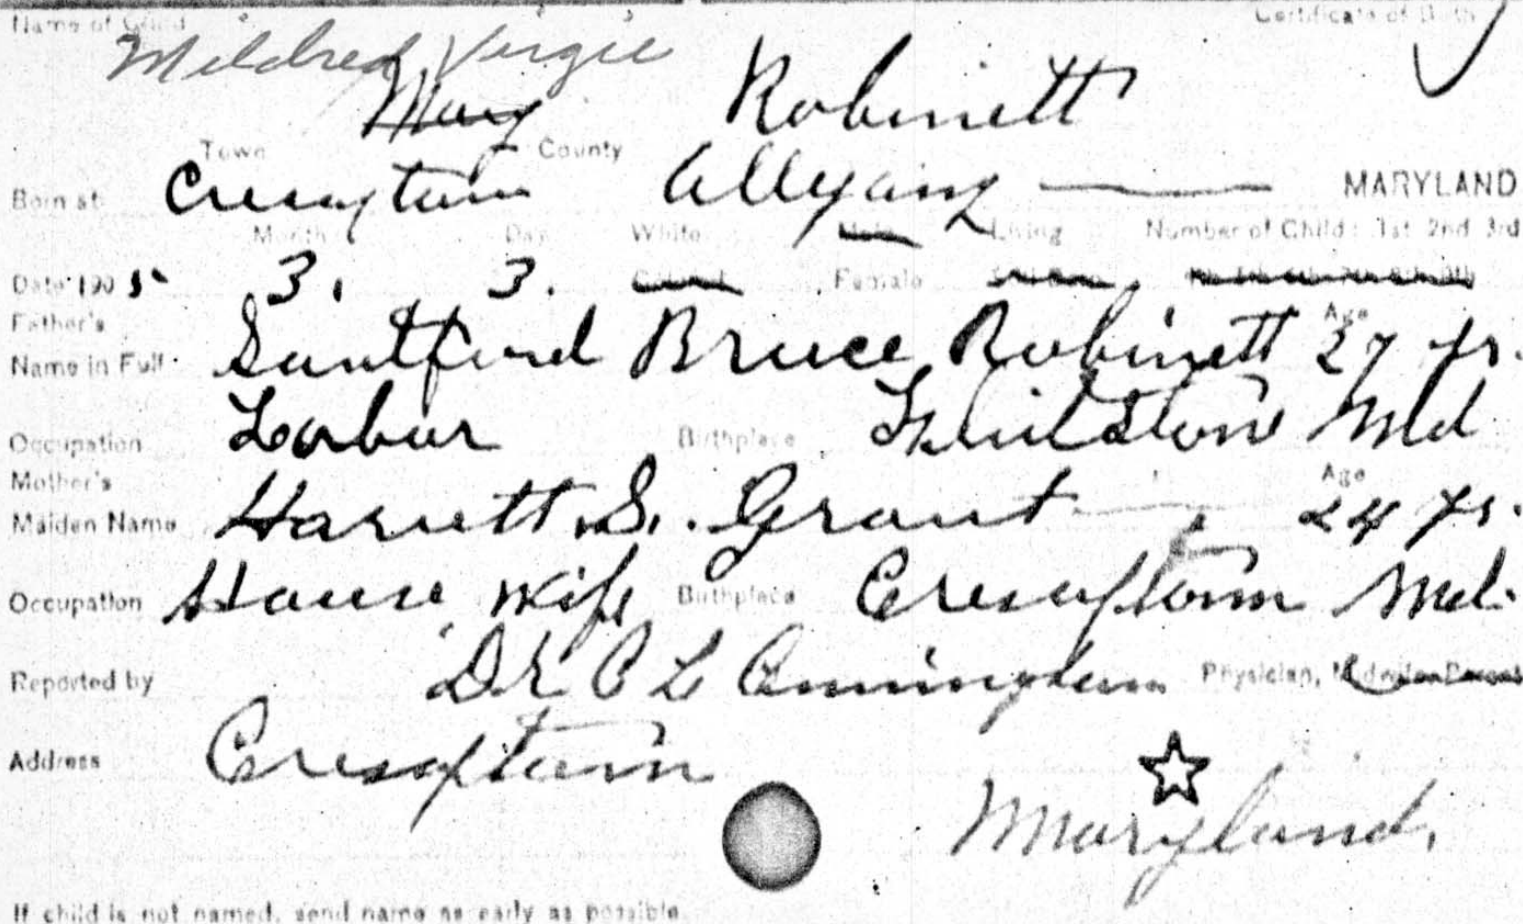 Name of Child Certificate of Birth
Mildred Virgie
Mary Robinett
Town County
Born at Cresaptown Allegany MARYLAND
Month Day White Male Living Number of Child: 1st 2nd 3rd
Date 1905 3. 3. Colored Female
Father's Age
Name in Full Santford Bruce Robinett 27 yrs.
Occupation Labur Birthplace Flintstone Md
Mother's Age
Maiden Name Hariett S. Grant 24 yrs.
Occupation House wife Birthplace Cresaptown Md.
Reported by Dr C L Physician,
Address Cresaptown
Maryland.
If child is not named, send name as early as possible.